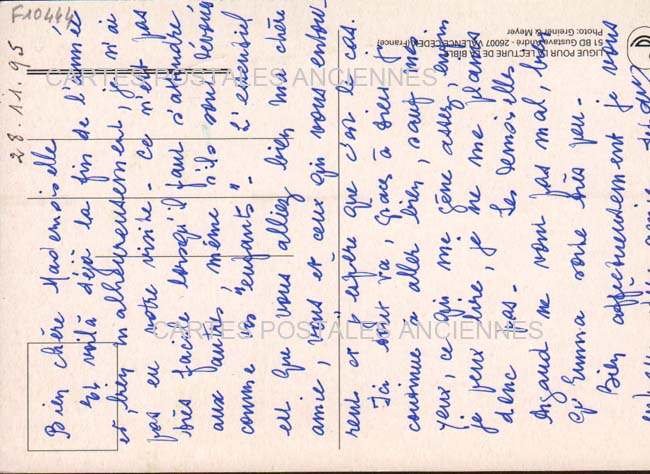 F10444
28.11.95
Bien chère Mademoiselle
Et voilà déjà la fin de l'année
et bien malheureusement, je n'ai
pas eu votre visite. Ce n'est pas
très facile lorsqu'il faut s'attendre
aux autres, même s'ils sont dévoués
comme vos "enfants". L'essentiel
est que vous alliez bien ma chère
amie, vous et ceux qui vous entou-
rent et j'espère que c'est le cas.
Ici tout va, grâces à Dieu je
continue à aller bien, sauf mes
yeux, ce qui me gêne assez, enfin
je peux lire, je ne me plains
donc pas. Les demoiselles
ne vont pas mal, bien
qu'Emma sorte très peu.
Bien affectueusement je vous
LIGUE POUR LA LECTURE DE LA BIBLE
51 BD Gustave André - 26007 VALENCE CEDEX (France)
Photo: Greiner & Meyer
CARTES POSTALES ANCIENNES
CARTES POSTALES ANCIENNES